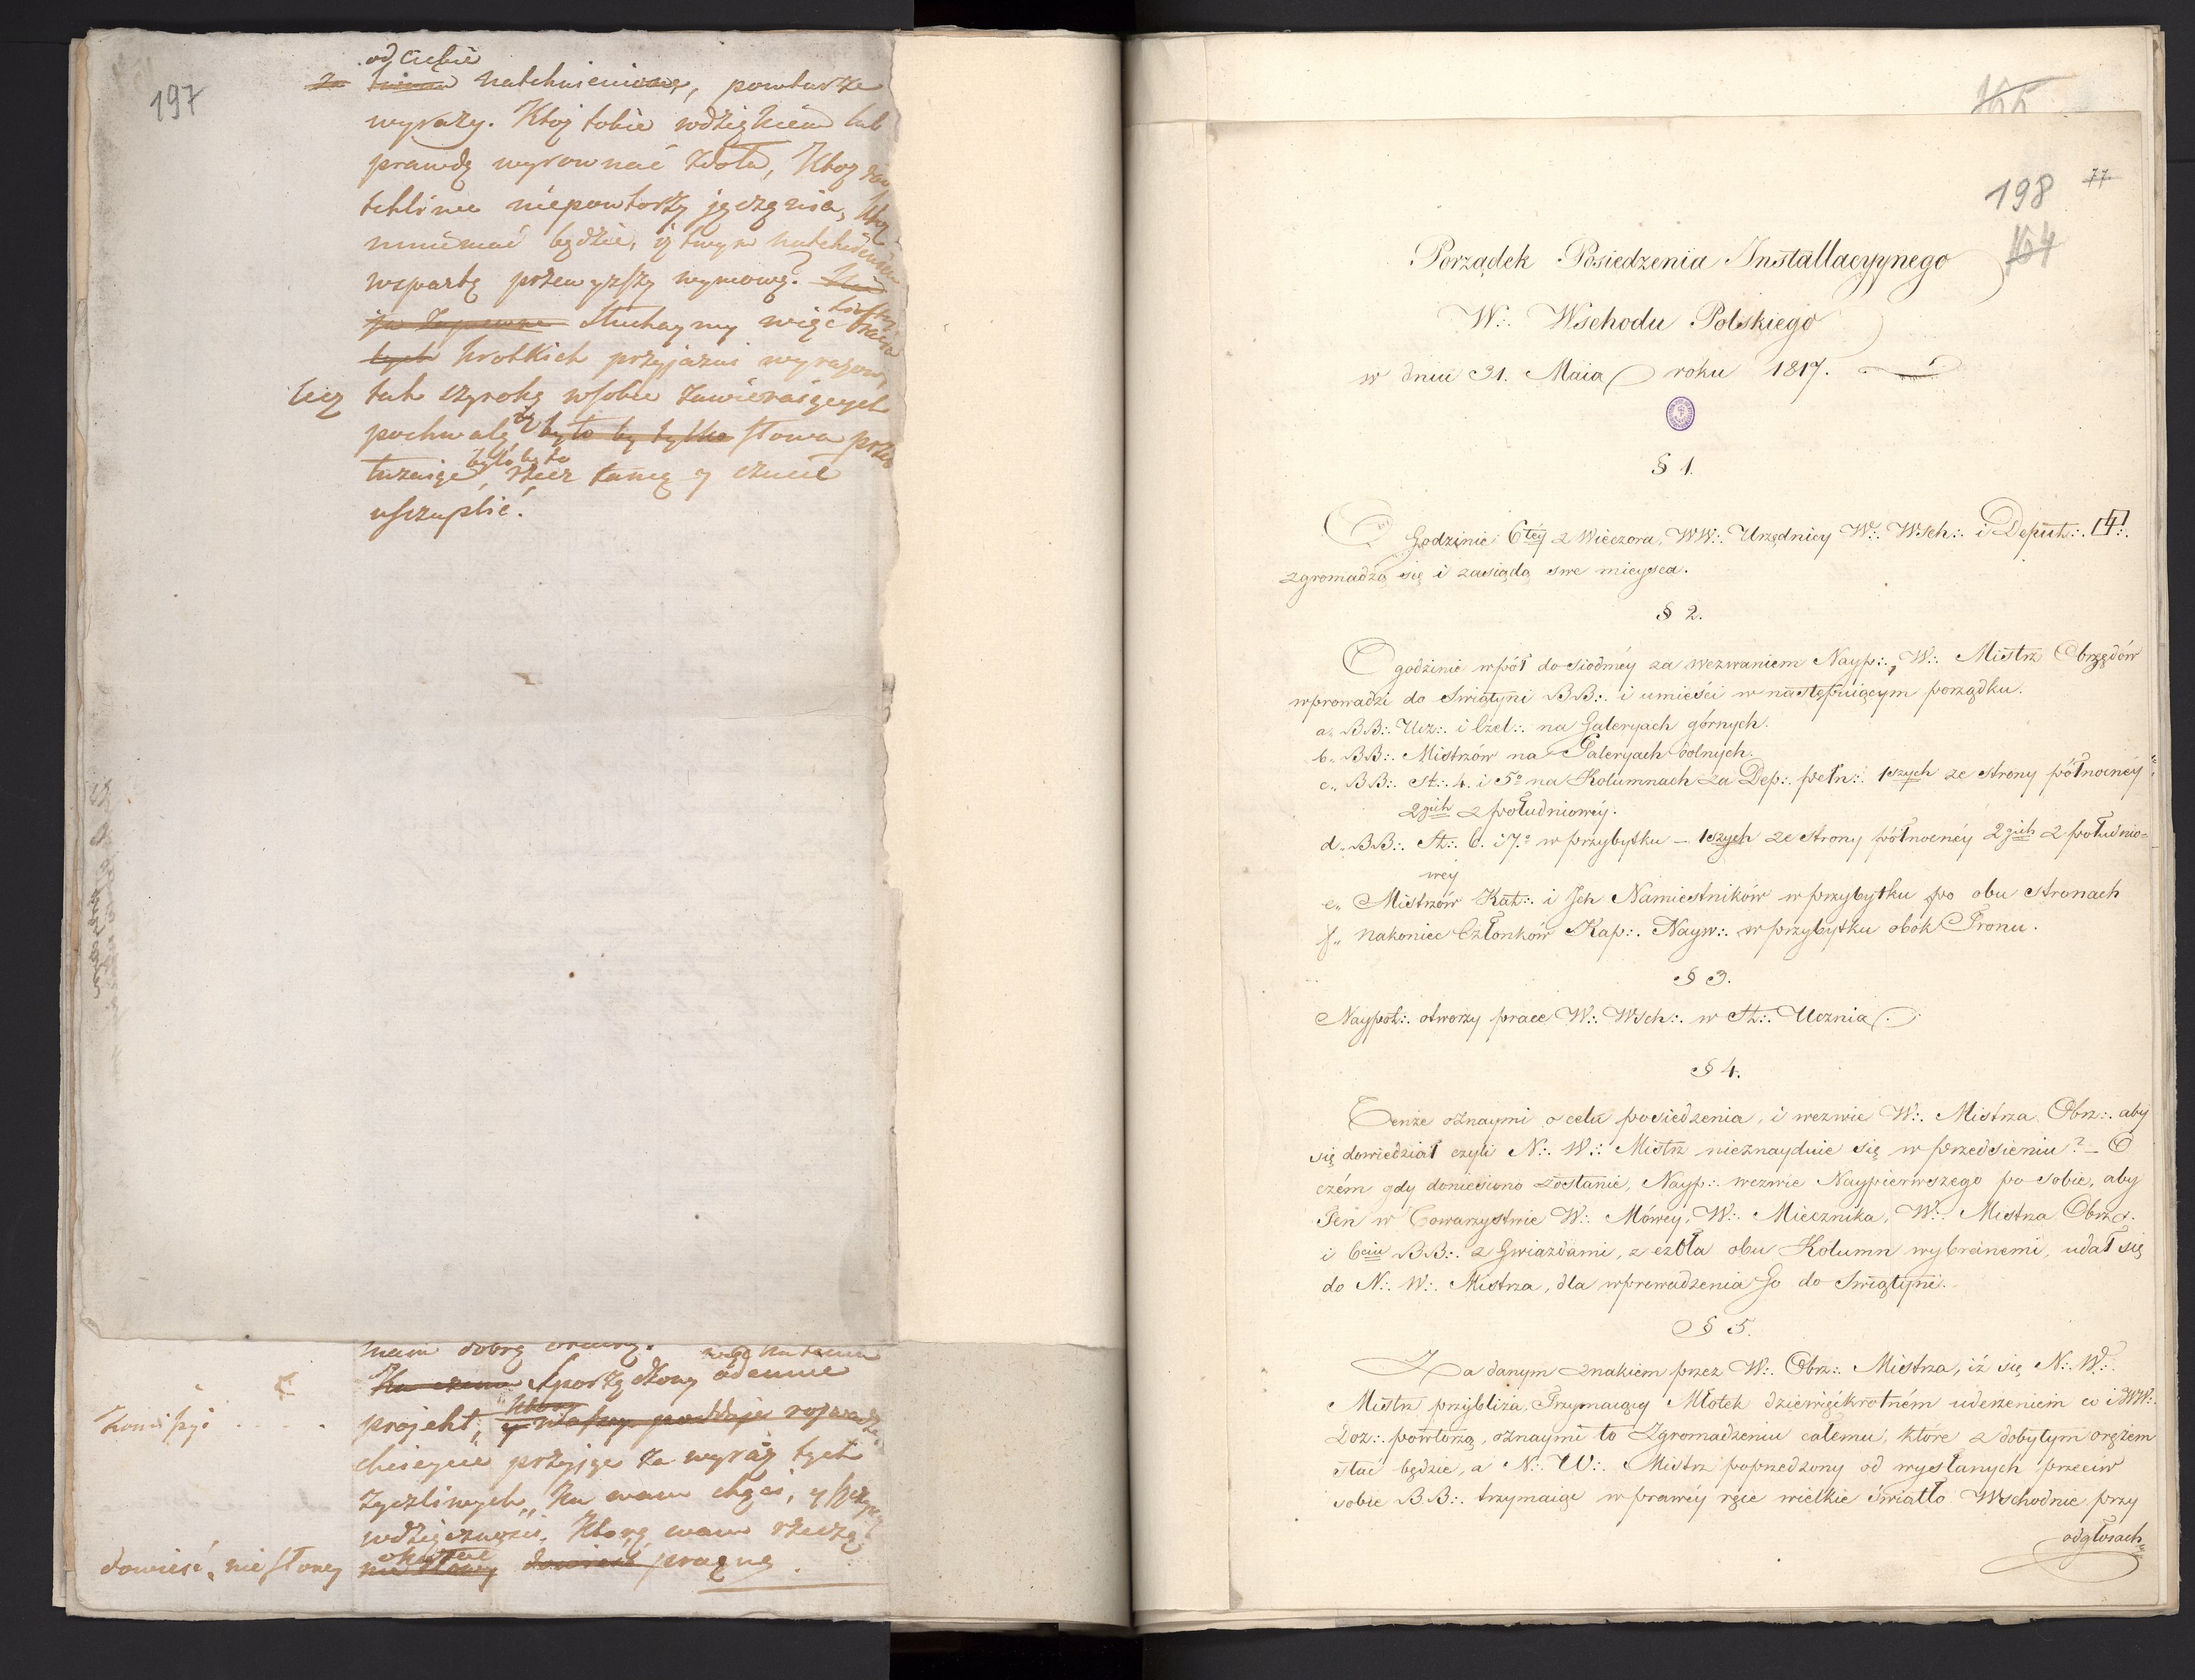 197
od Ciebie
natchnieniem, powtarza
wyrazy. Ktoż tobie wdziękiem lub
prawdą wyrownać zdoła, Ktoż
niepowtorzy ięczenia, Ktoż
mniemać będzie, iż twym natchnieniem
wsparty przewyższy wymową?
Słuchaymy więc
tych krotkich przyjazni wyrazow,
lecz tak szyroką w sobie zawieraiących
pochwałę, było by tylko słowa
było by to rzecz samą y czucie
uszczuplić.
mam dobrą
Sporządzony odemnie
projekt,
chcieycie przyjąć za wyraz tych
życzliwych, ku wam chęci, y
wdzięczności, Którą wam rzeczą
okazać
dowieść, nie słowy nie słowy dowieść pragnę.
165
198 77
164
Porządek Posiedzenia Installacyynego
W∴ Wschodu Polskiego
w dniu 31. Maia roku 1817.
§ 1.
O Godzinie 6téy z Wieczora, WW∴ Urzędnicy W∴ Wsch∴ i Deput∴ [4]∴
zgromadzą się i zasiądą swe mieysca.
§ 2.
O godzinie wpół do siodméy za wezwaniem Nayp∴, W∴ Mistrz Obrzędów
wprowadzi do Swiątyni BB∴ i umieści w następuiącym porządku.
a„ BB∴ Ucz∴ i Czel∴ na Galeryach górnych.
b„ BB∴ Mistrzów na Galeryach dolnych.
c„ BB∴ St∴ 4. i 5º na Kolumnach za Dep∴ pełn∴ 1szych ze strony północnéy
2gich z południowéy.
d„ BB∴ St∴ 6. i 7.º w przybytku – 1szych ze strony północnéy 2gich z południo=
wéy
e„ Mistrzów Kat∴ i Ich Namiestników w przybytku po obu stronach
f„ nakoniec Członków Kap∴ Nayw∴ w przybytku obok Tronu.
§ 3.
Naypot∴ otworzy prace W∴ Wsch∴ w St∴ Ucznia.
§ 4.
Tenże oznaymi o celu posiedzenia, i wezwie W∴ Mistrza Obrz∴ aby
się dowiedział czyli N∴ W∴ Mistrz nieznayduie się w przedsieniu? – O
czém gdy doniesiono zostanie, Nayp∴ wezwie Naypierwszego po sobie, aby
Ten w Towarzystwie W∴ Mówcy, W∴ Miecznika, W∴ Mistrza Obrz∴
i 6ciu BB∴ z Gwiazdami, z czoła obu Kolumn wybranemi, udał się
do N∴ W∴ Mistrza, dla wprowadzenia Go do Swiątyni.
§ 5.
Za danym znakiem przez W∴ Obrz∴ Mistrza, iż się N∴ W∴
Mistrz przybliża, Trzymaiący Młotek dziewięćkrotném uderzeniem co i WW∴
Doz∴ powtorzą, oznaymi to Zgromadzeniu całemu, które z dobytym orężem
stać będzie, a N∴ W∴ Mistrz poprzedzony od wysłanych przeciw
sobie BB∴ trzymaiąc w prawéy ręce wielkie światło Wschodnie przy
odgłosach